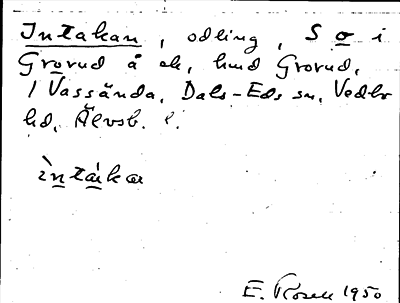 Intakan, odling, S o i
Grorud å ek, hmd Grorud,
1 Vassända, Dals-Eds sn, Vedbo
hd, Älvsb. l.
ìntákar
E. Rosell 1950